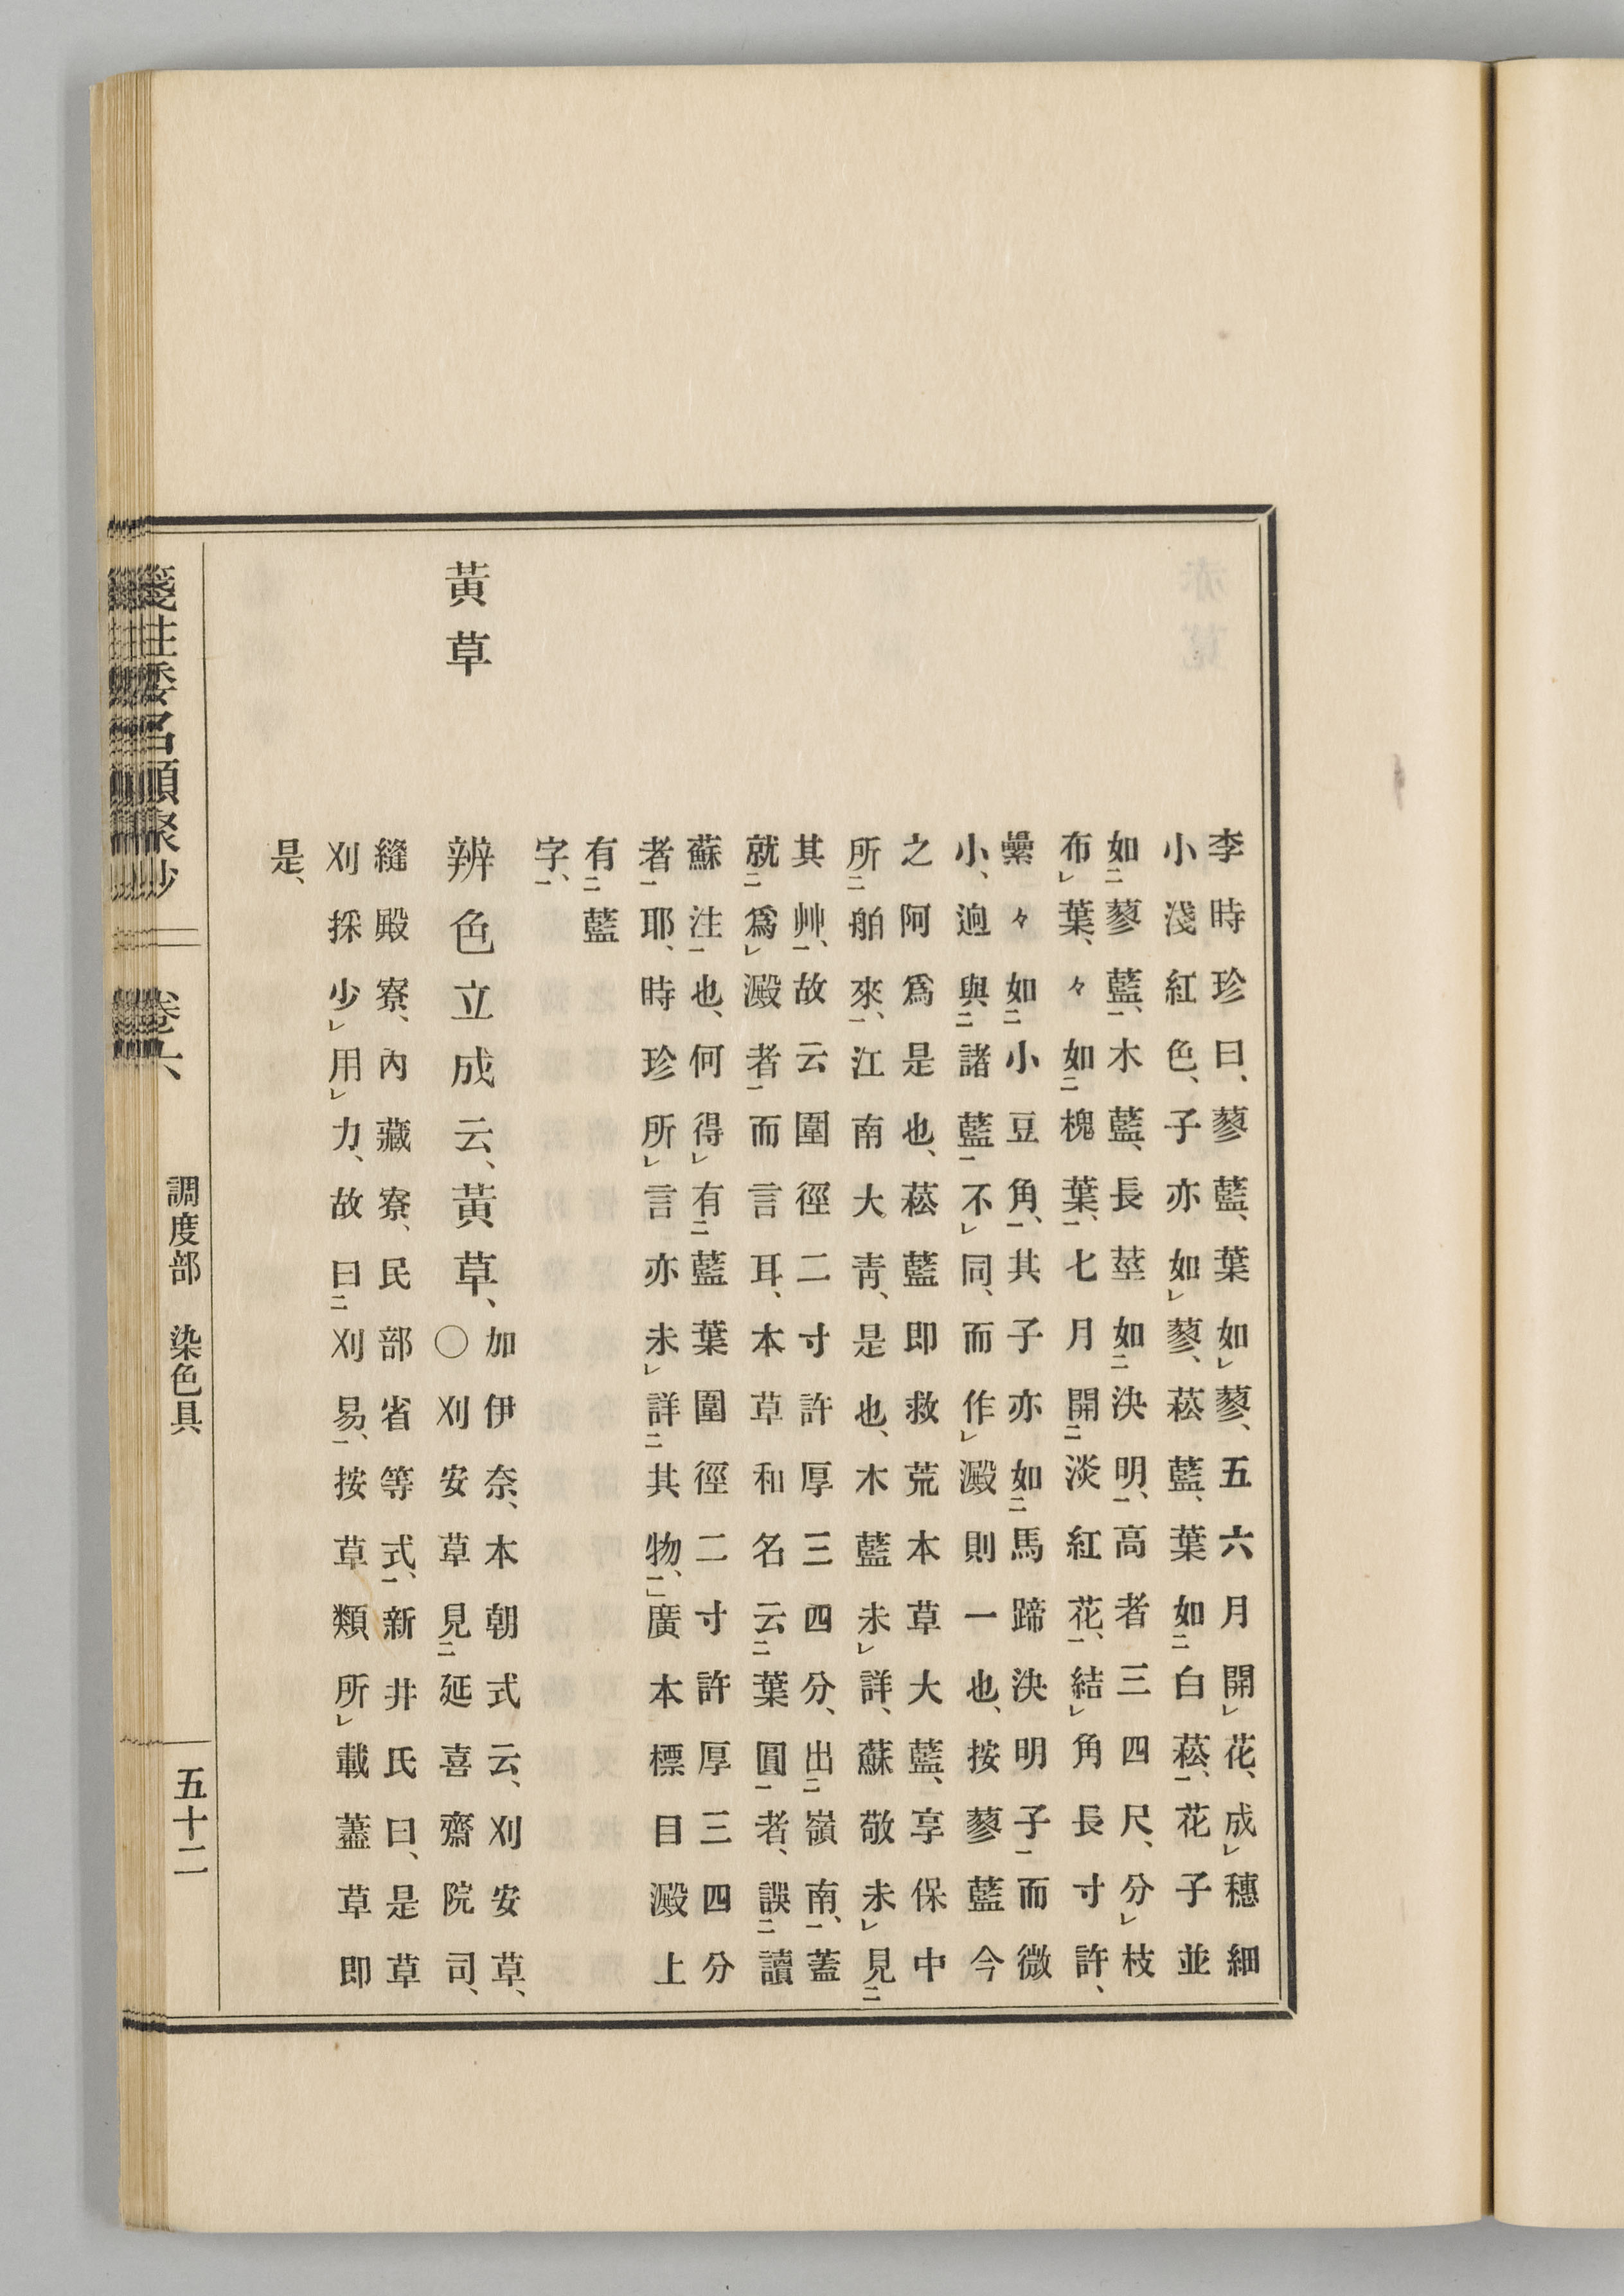 李時珍曰、蓼藍、葉如㆑蓼、五六月開㆑花、成㆑穗細
小淺紅色、子亦如㆑蓼、菘藍、葉如㆓白菘㆒、花子並
如㆓蓼藍㆒、木藍、長莖如㆓決明㆒、高者三四尺、分㆑枝
布㆑葉、々如㆓槐葉㆒、七月開㆓淡紅花㆒、結㆑角長寸許、
纍々如㆓小豆角㆒、其子亦如㆓馬蹄決明子㆒而微
小、迥與㆓諸藍㆒不㆑同、而作㆑澱則一也、按蓼藍今
之阿爲是也、菘藍即救荒本草大藍、享保中
所㆓舶來㆒、江南大靑、是也、木藍未㆑詳、蘇敬未㆑見㆓
其艸㆒、故云圍徑二寸許厚三四分、出㆓嶺南㆒、蓋
就㆓爲㆑澱者㆒而言耳、本草和名云㆓葉圓㆒者、誤㆓讀
蘇注㆒也、何得㆑有㆓藍葉圍徑二寸許厚三四分
者㆒耶、時珍所㆑言亦未㆑詳㆓其物㆒、」廣本標目澱上
有㆓藍
字㆒、
黃草 辨色立成云、黃草、
加伊奈、本朝式云、刈安草、
〇刈安草見㆓延喜齋院司、
縫殿寮、內藏寮、民部省等式㆒、新井氏曰、是草
刈採少㆑用㆑力、故曰㆓刈易㆒、按草類所㆑載藎草即
是、
箋注倭名類聚抄 卷六 調度部 染色具 五十二